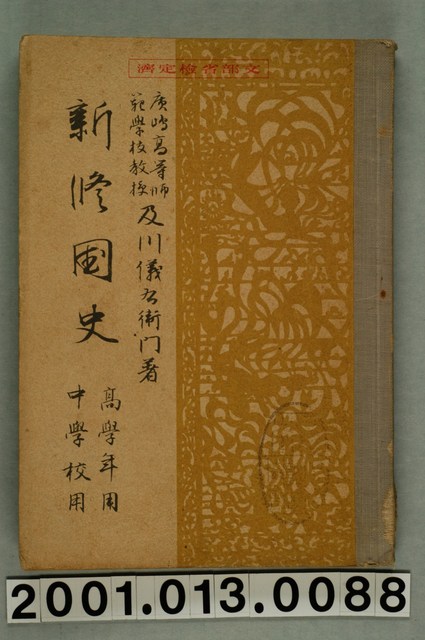 文部省検定濟
廣島高等師
範學校教授
及川儀右衛门著
新修國史
高學年用
中學校用
2001.013.0088